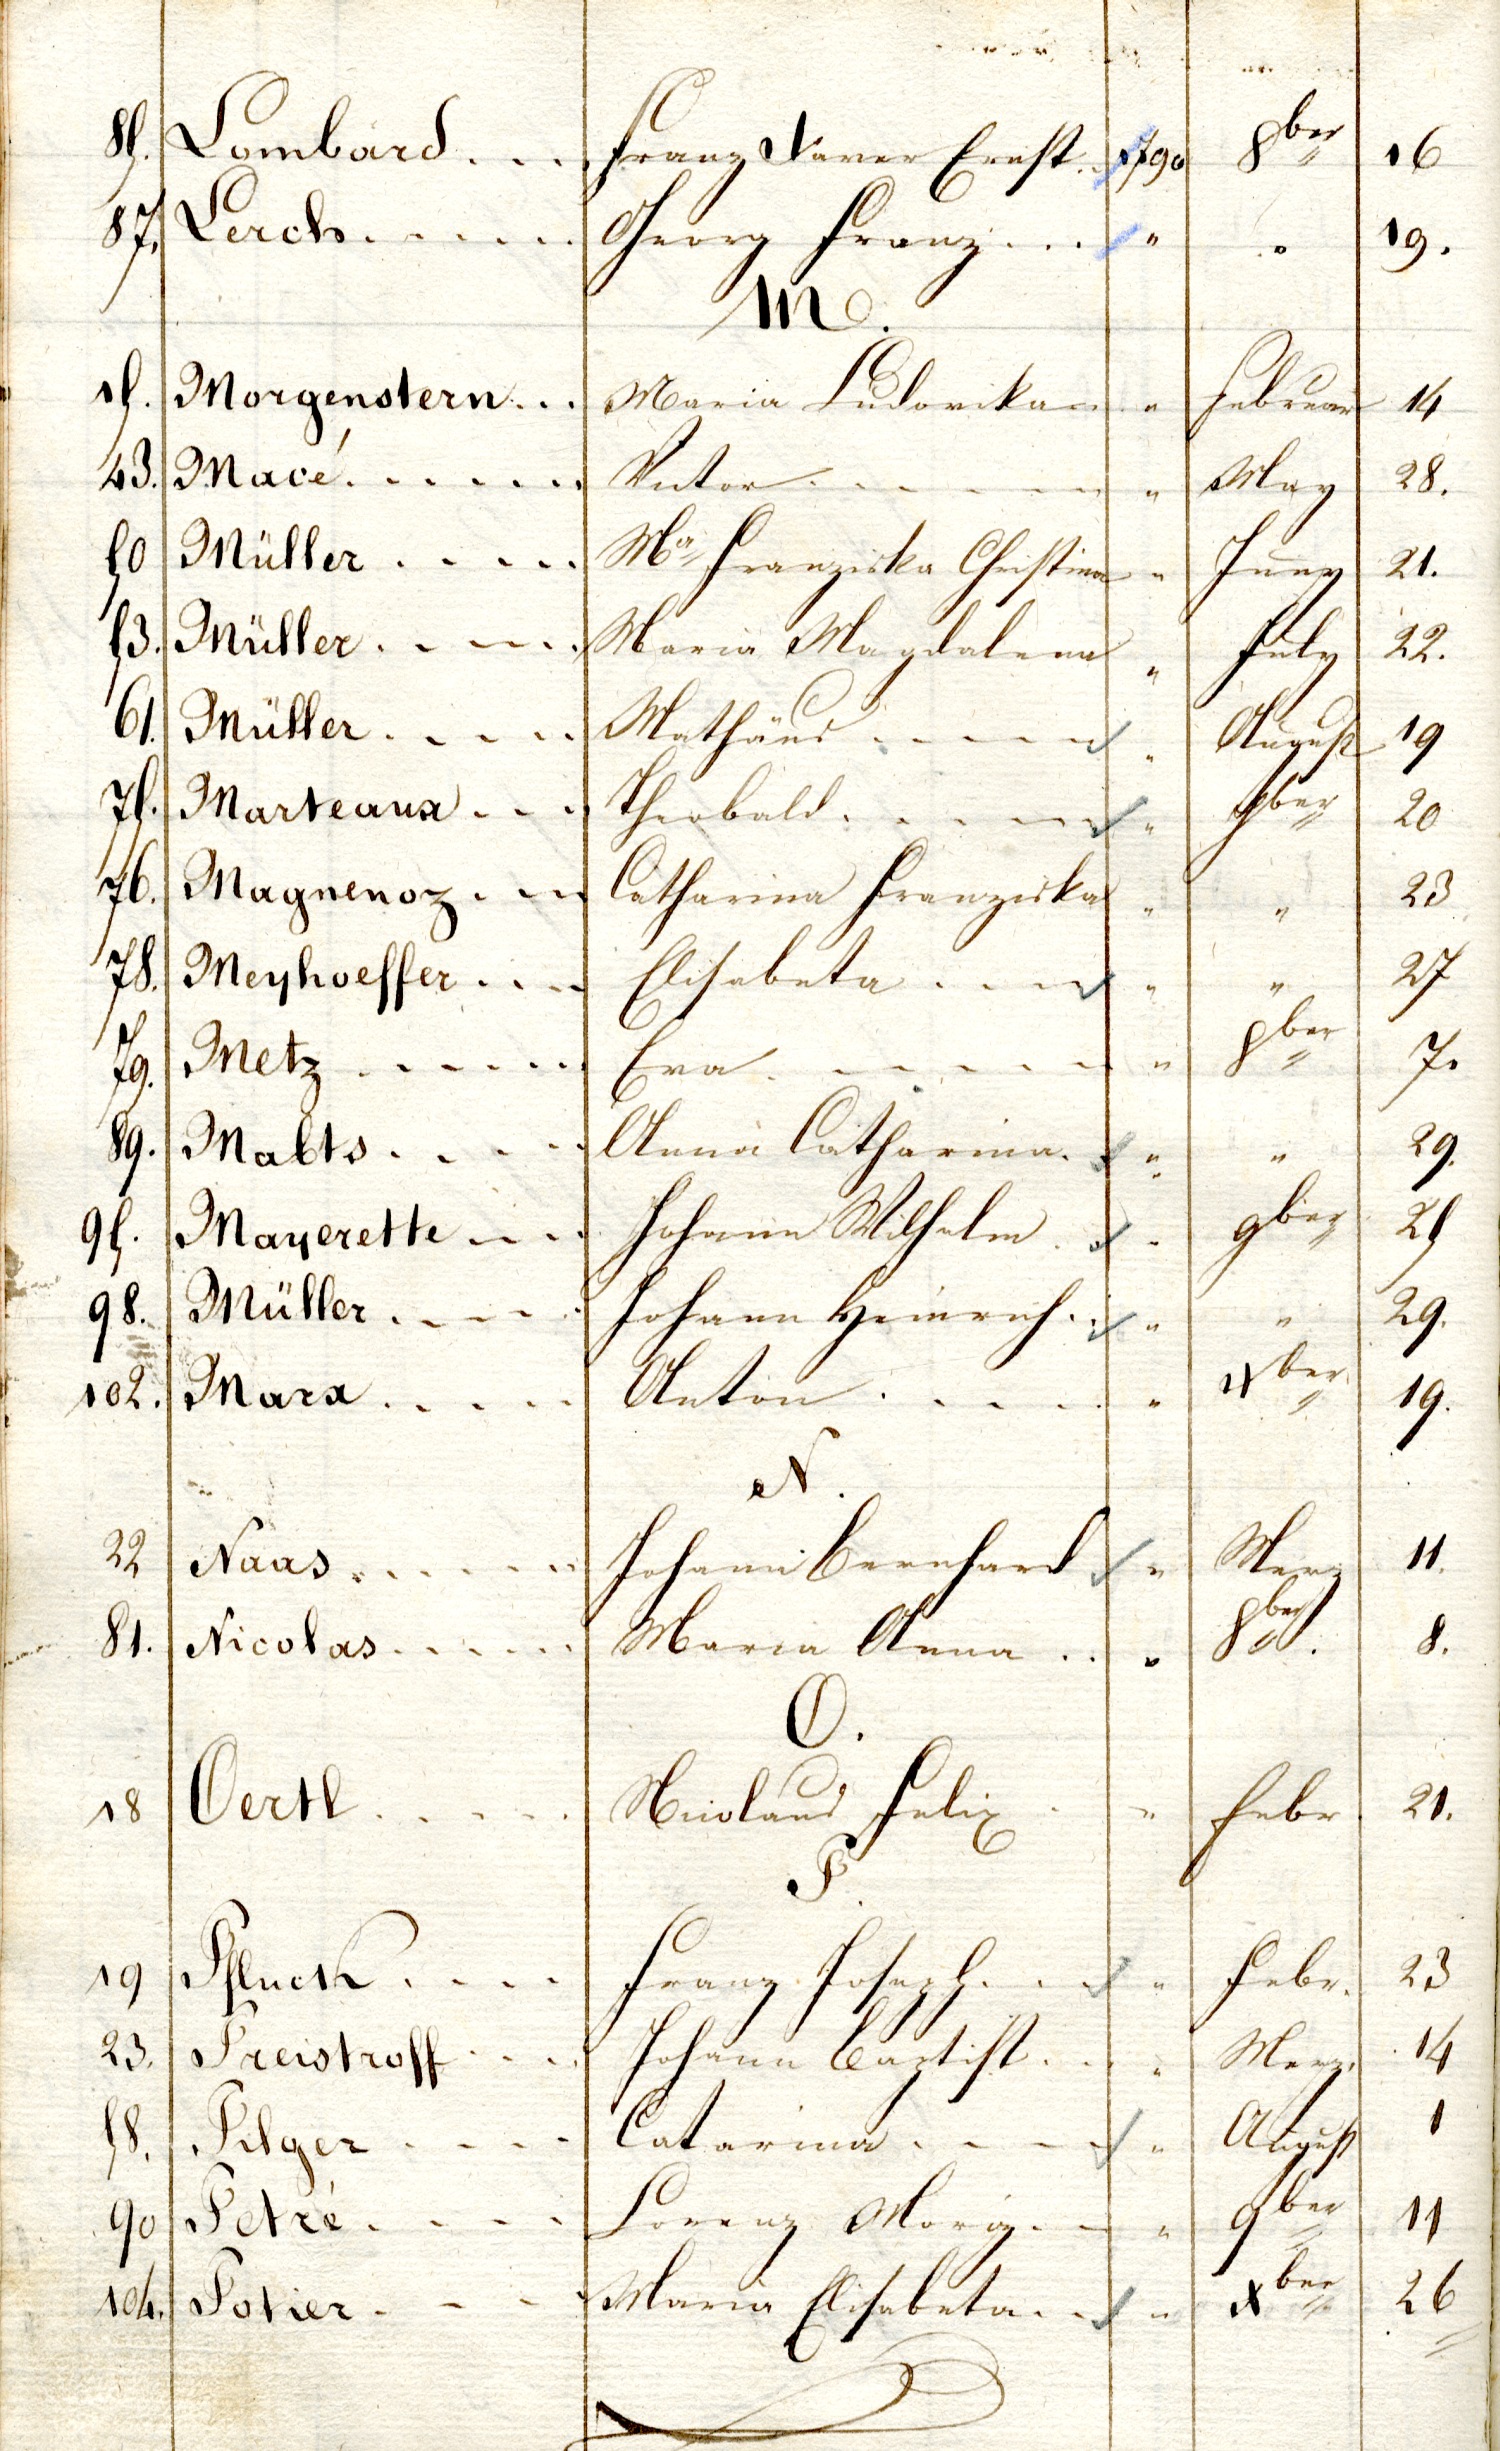 85. Lombard . . . Franz Xaver Ernst . . 1790 8ber 16
87. Lerch . . . . . . Georg Franz . . . " " 19.
M.
15. Morgenstern . . . Maria Ludovika " Februar 14
43. Macé . . . . . . Victor . . . . . " May 28.
50 Müller . . . . . Ma Franziska Christina " Juny 21.
53. Müller . . . . . Maria Magdalena " July 22.
61. Müller . . . . . Mathäus . . . . . " August 19
75. Marteaux . . . Theobald . . . . . " 7ber 20
76. Magnenoz . . . Catharina Franziska " " 23
78. Meyhoeffer . . . . Elisabeta . . . . " " 27
79. Metz . . . . . . Eva . . . . . . " 8ber 7.
89. Malts . . . . . Anna Catharina . " " 29.
95. Mayerette . . . Johann Wilhelm . " 9ber 25
98. Müller . . . . . Johann Heinrich . . " " 29.
102. Marx . . . . . Anton . . . . . " Xber 19.
N.
22 Naas . . . . . . Johann Bernhard " Merz 11.
81. Nicolas . . . . . Maria Anna . . " 8ber . 8.
O.
18 Oertl . . . . . Nicolaus Felix . " Febr. 21.
P.
19 Pfluck . . . . Franz Joseph . . . " Febr. 23
23. Preistroff . . . Johann Baptist . . " Merz. 14
58. Pilger . . . . Catarina . . . . " August 1
90 Petré . . . . . Lorenz Moriz . . " 9ber 11
104. Potier . . . . Maria Elisabeta . . " Xber 26